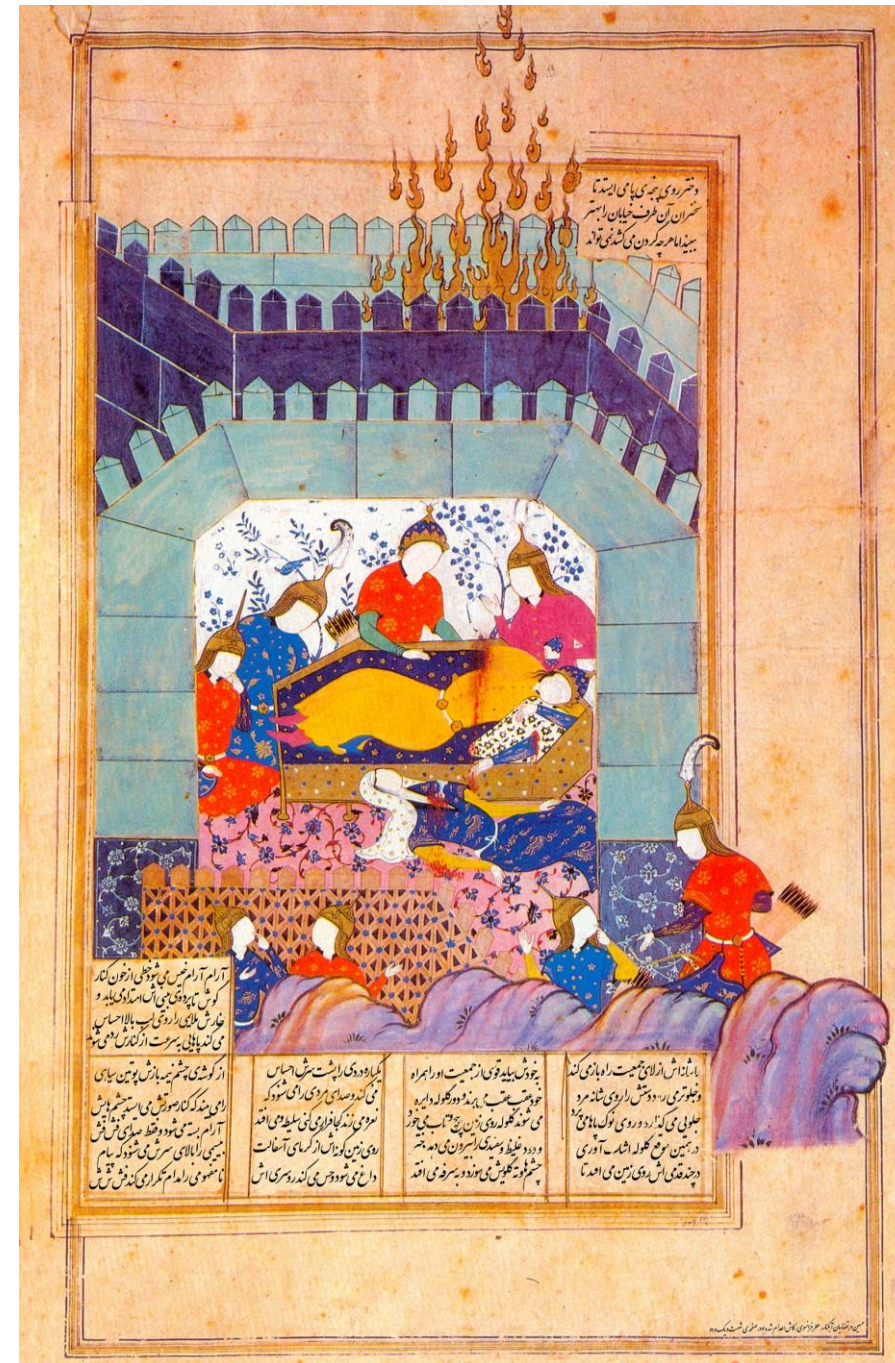 دختر روی پنجه ی پا می ایستد تا
سخنران آن طرف خیابان را بهتر
ببیند اما هر چه گردن می کشد نمی تواند
با شانه اش از لای جمعیت راه باز می کند
و جلوتر می رود دستش را روی شانه مرد
جلویی می گذارد و روی نوک پاها می پرد
در همین موقع گلوله اشک آوری
در چند قدمی اش روی زمین می افتد تا
خودش بیاید از جمعیت او را همراه
خود عقب عقب می برند و دور گلوله دایره
می شوند گلوله روی زمین پیچ و تاب می خورد
و دود غلیظ و سفیدی را بیرون می دهد
چشم ها و ته گلویش می سوزد و به سرفه می افتد
یکباره دردی را پشت سرش احساس
می کند و صدای مردی را می شنود که
نعره می زند کجا فرار می کنی سلیطه و می افتد
روی زمین گونه اش از گرمای آسفالت
داغ می شود و حس می کند روسری اش
آرام آرام خیس می شود خطی از خون کنار
گوش تا پرده ی بینی اش امتداد می یابد و
خارش ملایمی را روی لب بالا احساس
می کند پاهایی به سرعت از کنارش رد می شوند
از گوشه ی چشم نیمه بازش پوتین سیاهی
را می بیند که کنار صورتش می ایستد چشم هایش
آرام بسته می شود و فقط صدای فش فش
بیسیمی را بالای سرش می شنود که پیام
نامفهومی را مدام تکرار می کند فش فش فش